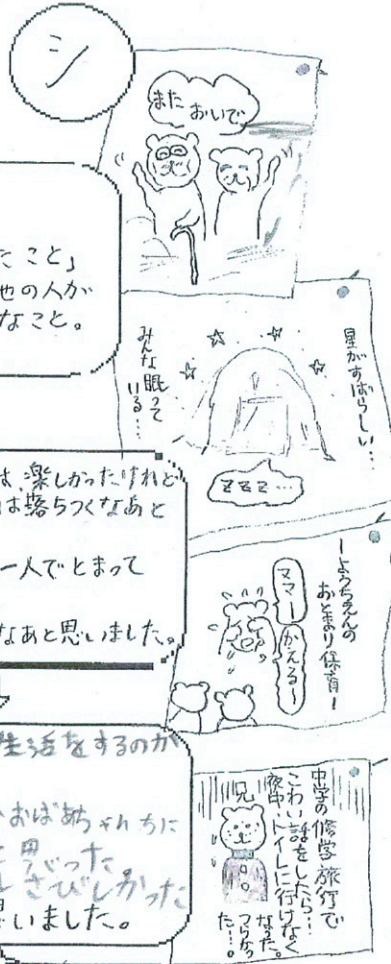 シ
また
おいで
たこと」
他の人が
なこと。
星がすばらしい…
みんな眠って
いる…
zzz…
は楽しかったけれど
は落ちつくなあと
一人でとまって
なあと思いました。
ーようちえんの
おとまり保育ー
ママー
かえるー
生活をするのが
おばあちゃんちに
さびしかった
思いました。
中学の修学旅行で
こわい話をしたら…
夜中、トイレに行けなく
なった。
つらかっ
た…。
兄